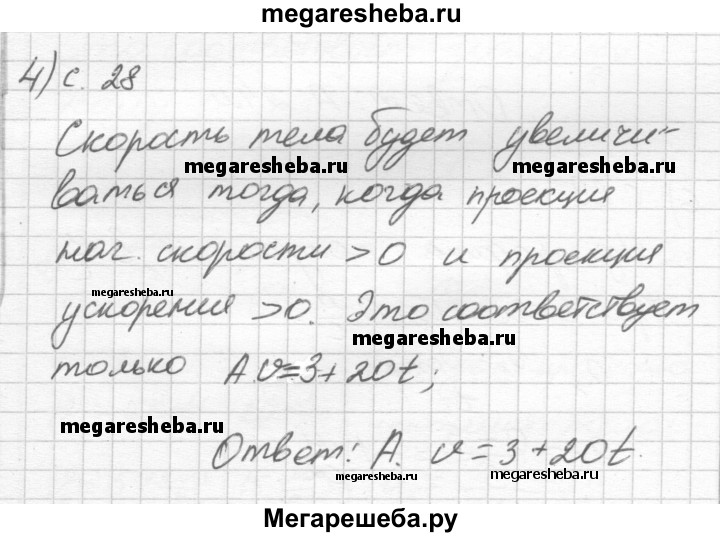 megaresheba.ru
4) с. 28
Скорость тела будет увеличи-
megaresheba.ru megaresheba.ru
ваться тогда, когда проекция
нач. скорости >0 и проекция
megaresheba.ru
ускорения >0. Это соответствует
megaresheba.ru
только А. v=3+20t;
megaresheba.ru
Ответ: А. v=3+20t.
megaresheba.ru megaresheba.ru
Мегарешеба.ру